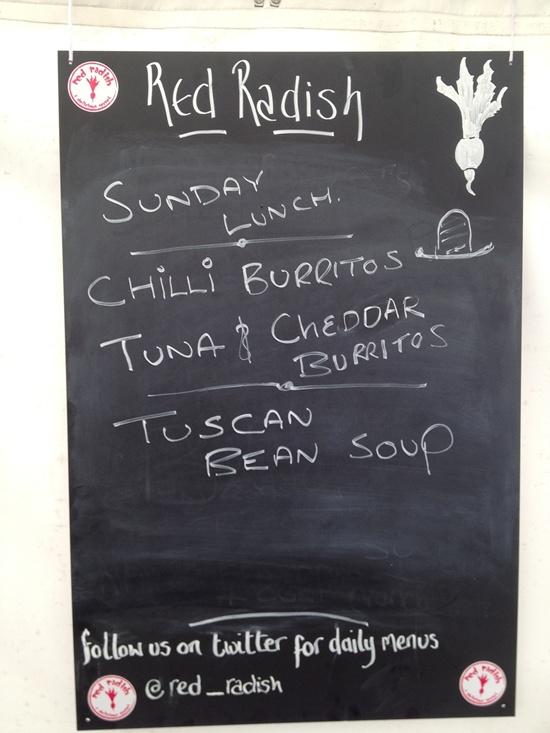 red radish
Red Radish
SUNDAY
LUNCH.
CHiLLi BURRiTOS
TUNA & CHEDDAR
BURRITOS
TUSCAN
BEAN SOUP
follow us on twitter for daily menus
@red_radish
red radish
red radish